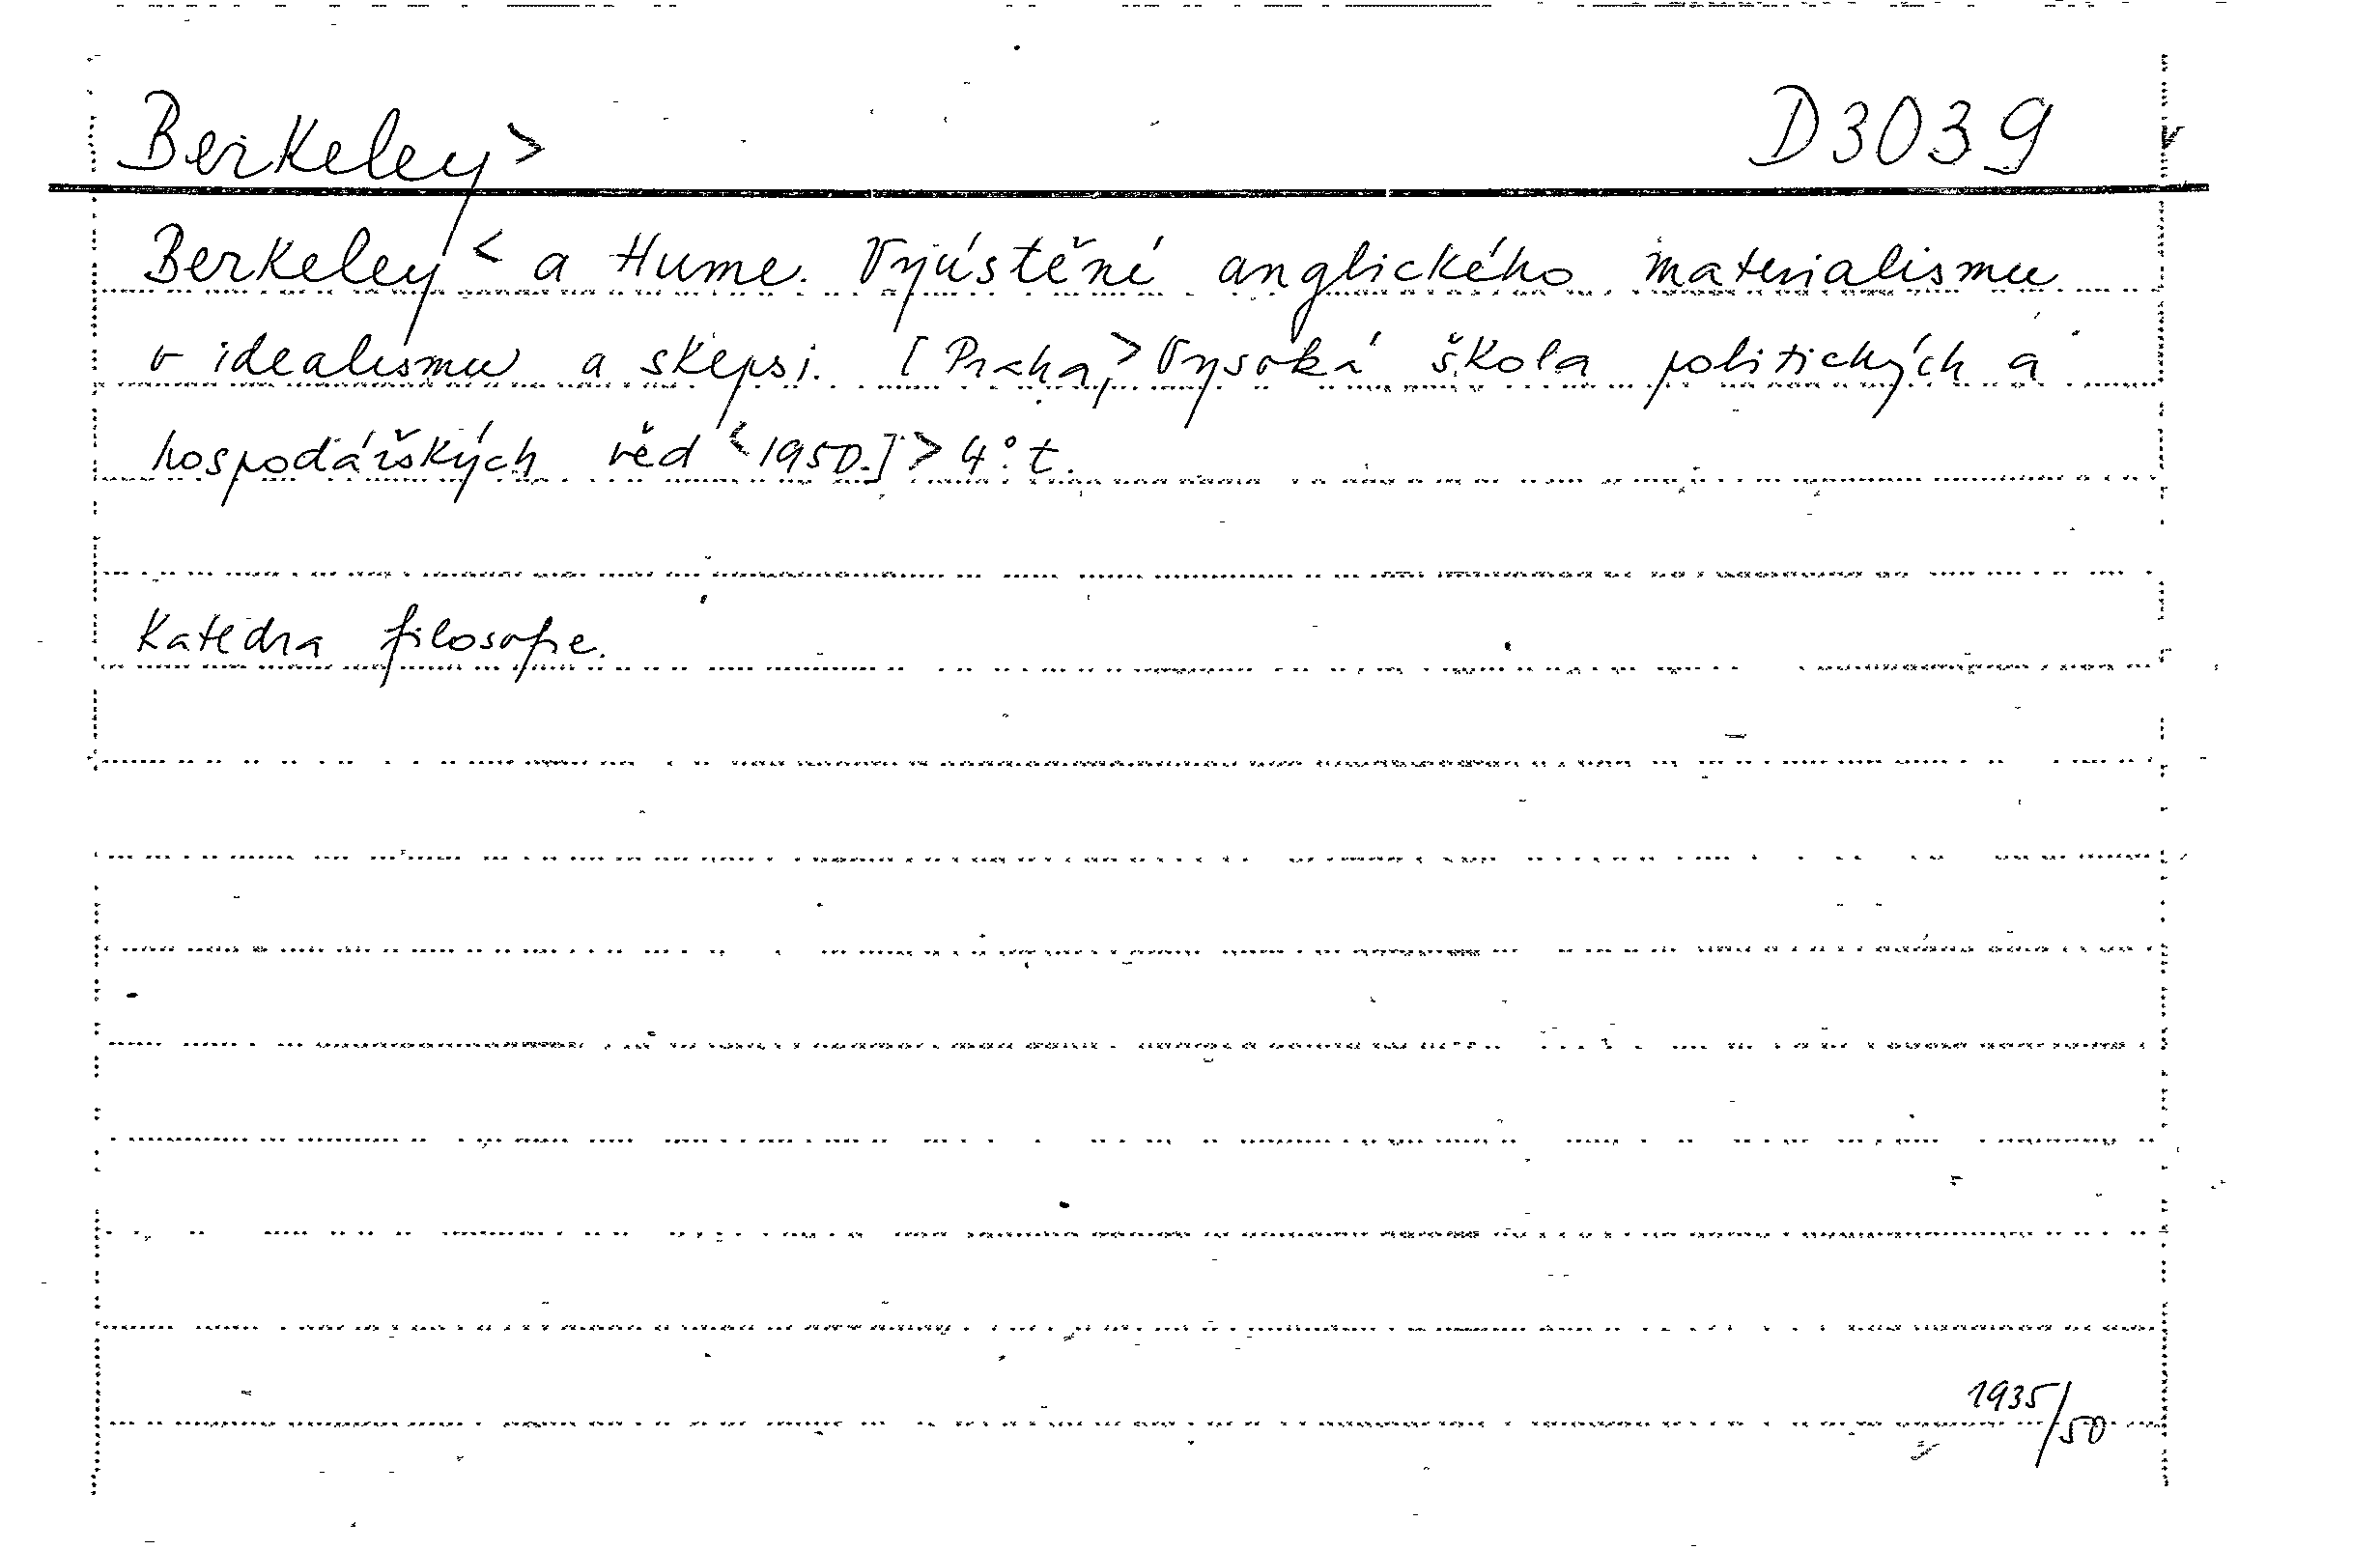 Berkeley> D3039
Berkeley< a Hume. Vyústění anglického materialismu
v idealismu a skepsi. [Praha,> Vysoká škola politických a
hospodářských věd <1950.]> 4°. t.
Katedra filosofie.
1935/50